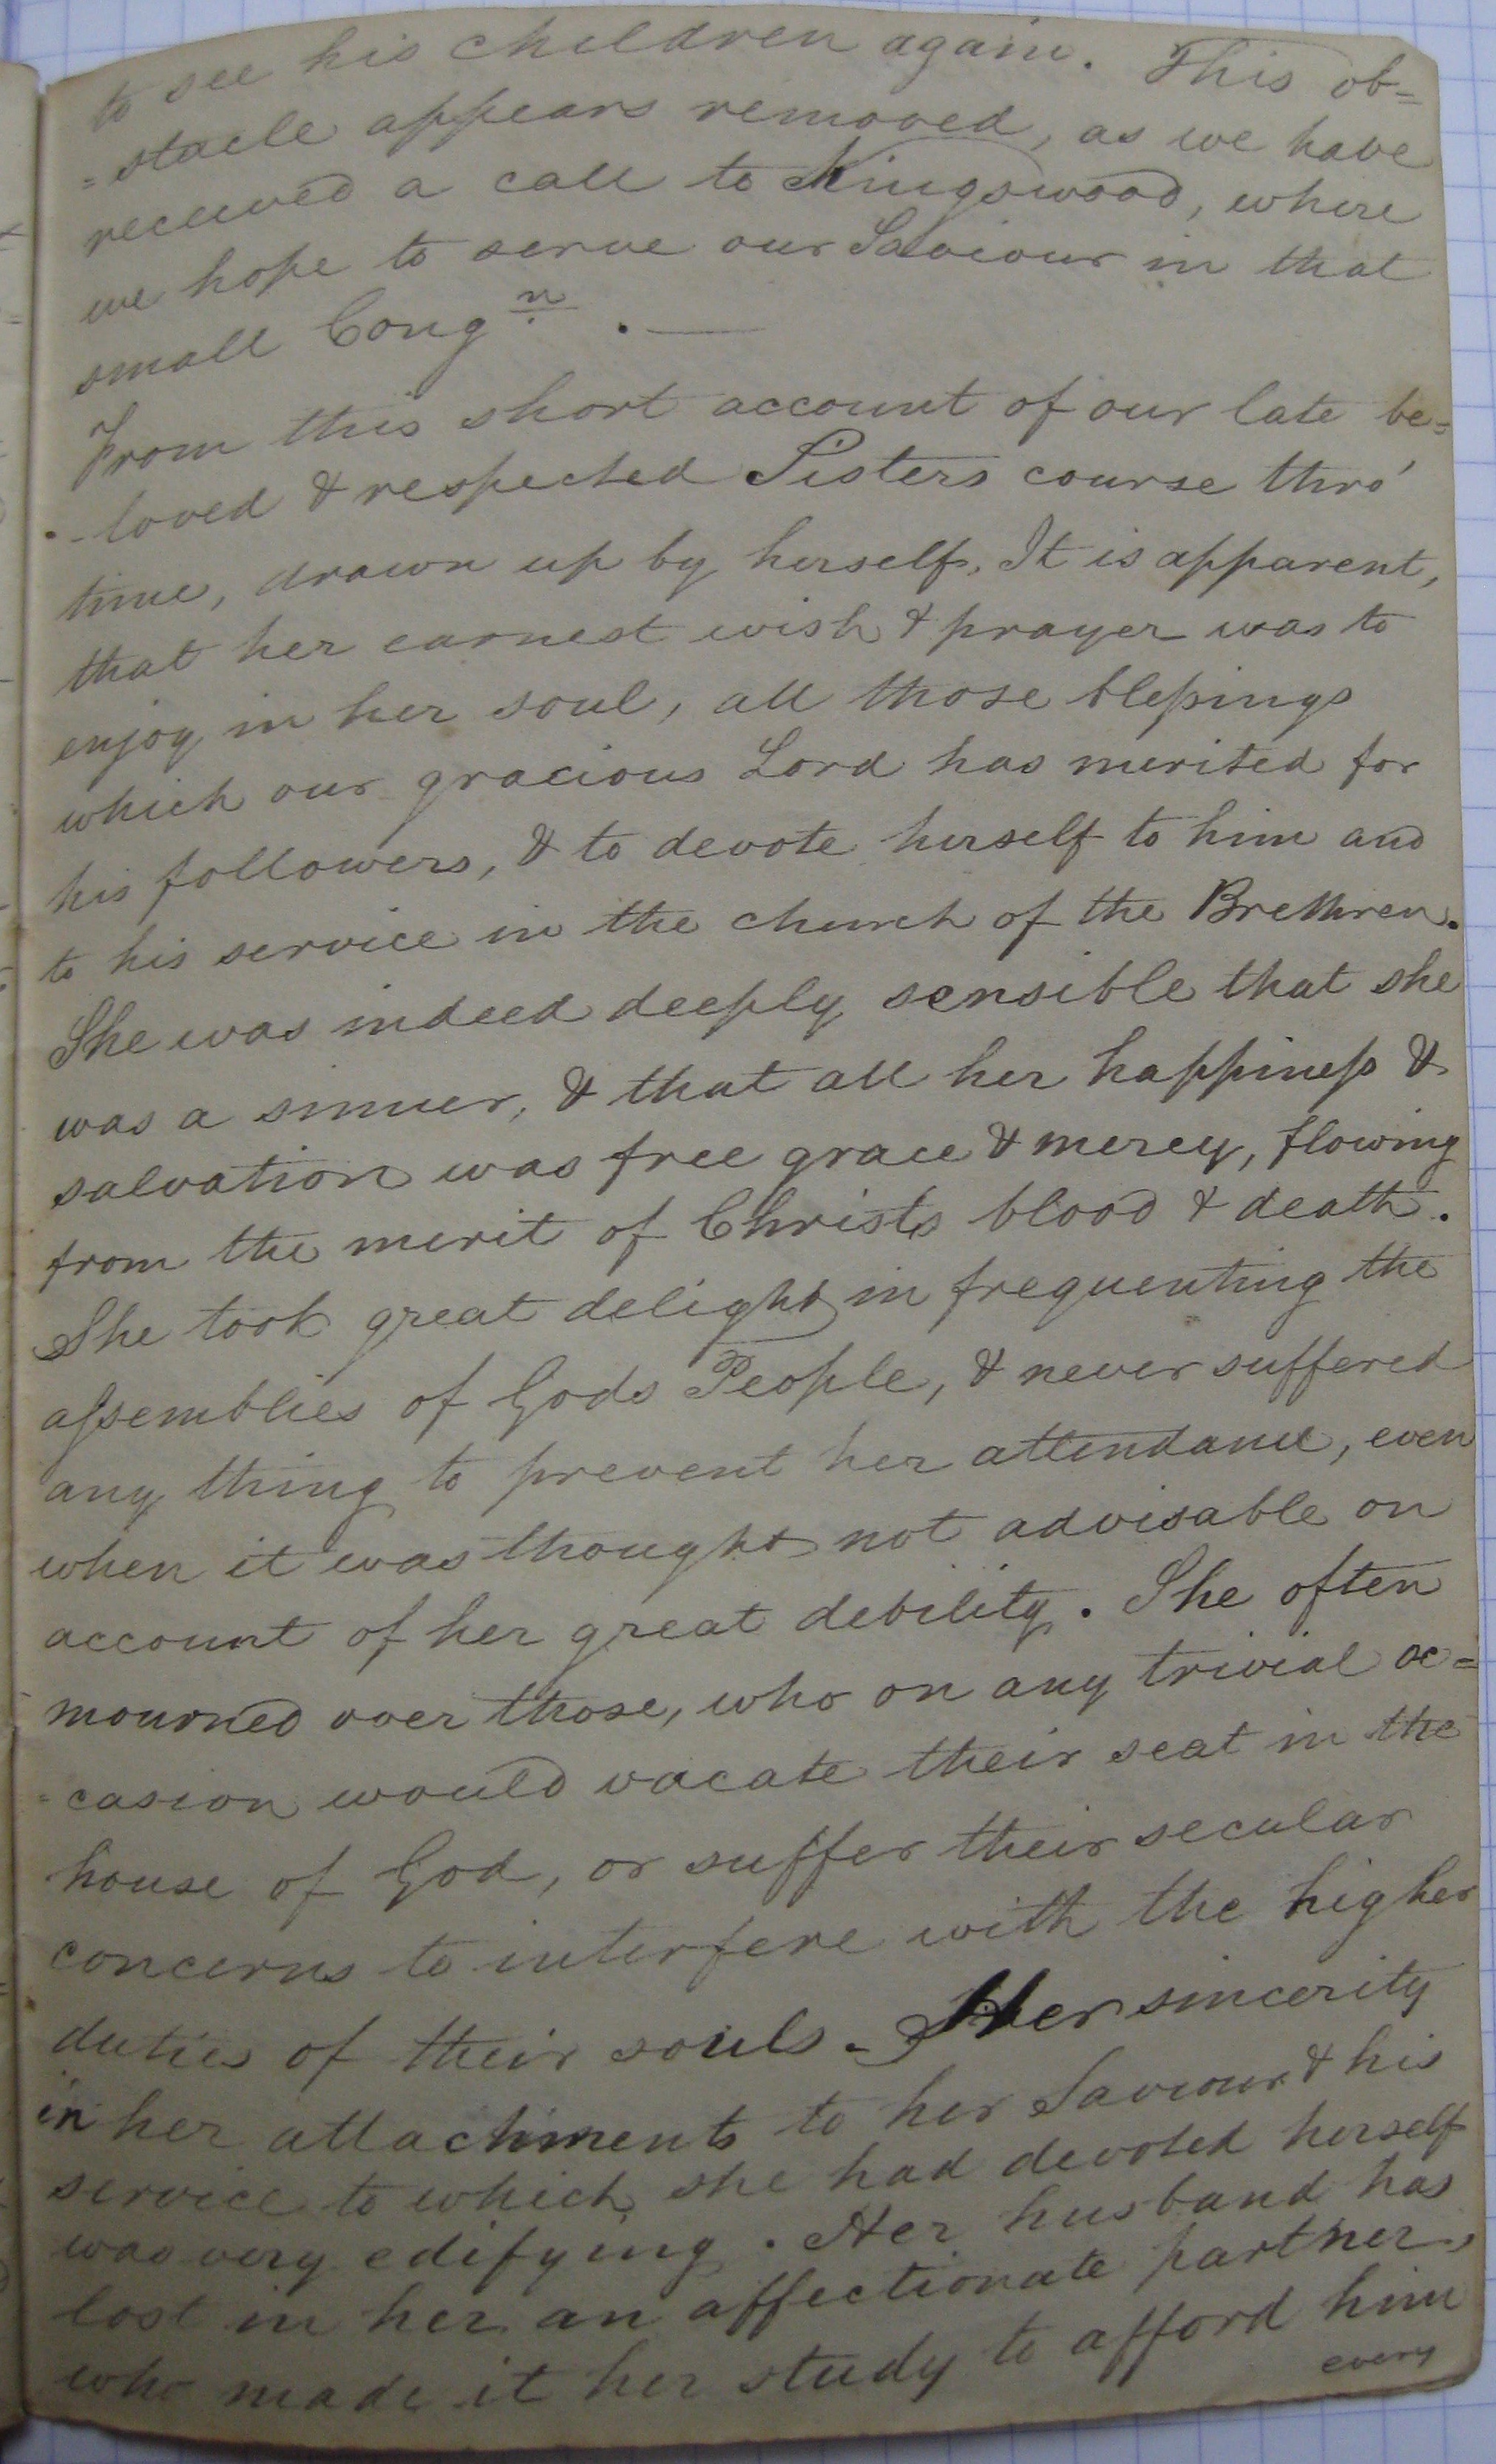 to see his children again. This ob=
=stacle appears removed, as we have
received a call to Kingswood, where
we hope to serve our Saviour in that
small Congn. —
From this short account of our late be=
-loved & respected Sisters course thro'
time, drawn up by herself, It is apparent,
that her earnest wish & prayer was to
enjoy in her soul, all those bleſsings
which our gracious Lord has merited for
his followers, & to devote herself to him and
to his service in the church of the Brethren.
She was indeed deeply sensible that she
was a sinner, & that all her happineſs &
salvation was free grace & mercy, flowing
from the merit of Christs blood & death.
She took great delight in frequenting the
aſsemblies of Gods People, & never suffered
any thing to prevent her attendance, even
when it was thought not advisable on
account of her great debility. She often
mourned over those, who on any trivial oc=
=casion would vacate their seat in the
house of God, or suffer their secular
concerns to interfere with the higher
duties of their souls. Her sincerity
in her attachments to her Saviour & his
service to which she had devoted herself
was very edifying. Her husband has
lost in her an affectionate partner,
who made it her study to afford him
every